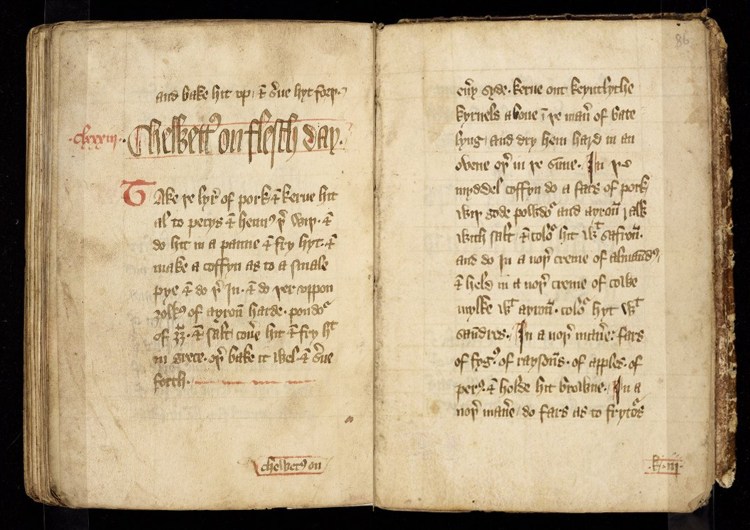 and bake hit up, & s̉ue hyt forþ.
clxxxiii. Chewett̉ on flessh day.
Take þe lyr̉ of pork & kerue hit
al to pecys & henn̉ þ̉ wiþ. &
do hit in a panne & fry hyt. &
make a coffyn as to a smale
pye & do þ̉ in. & do þer uppon
ȝolk̉ of ayroun harde. poudo᷑
of gȳḡ. & salt. coủe hit & fry hͭ
in grece. oþ̉ bake it wel. & s̉ue
forth.
chewet̉ on
86
eủy syde. kerue out keyntlythe
kyrnels aboue ī þe man̉ of bate
lyng, and dry hem hard in an
ovene oþ̉ in þe sūne. In þe
myddel coffyn do a fars of pork
wiþ gode powdo᷑ and ayroū raw
with salt. & colo᷑ hit wͭ safron.
and do in a noþ̉ creme of almand̉,
& held in a noþ̉ creme of cowe
mylke wͭ ayroū. colo᷑ hyt wͭ
sandres. In a noþ̉ maner̉: fars
of fyg̉. of raysoūs. of apples. of
per̉. & holde hit browne. In a
noþ̉ maner̉, do fars as to fryto᷑s